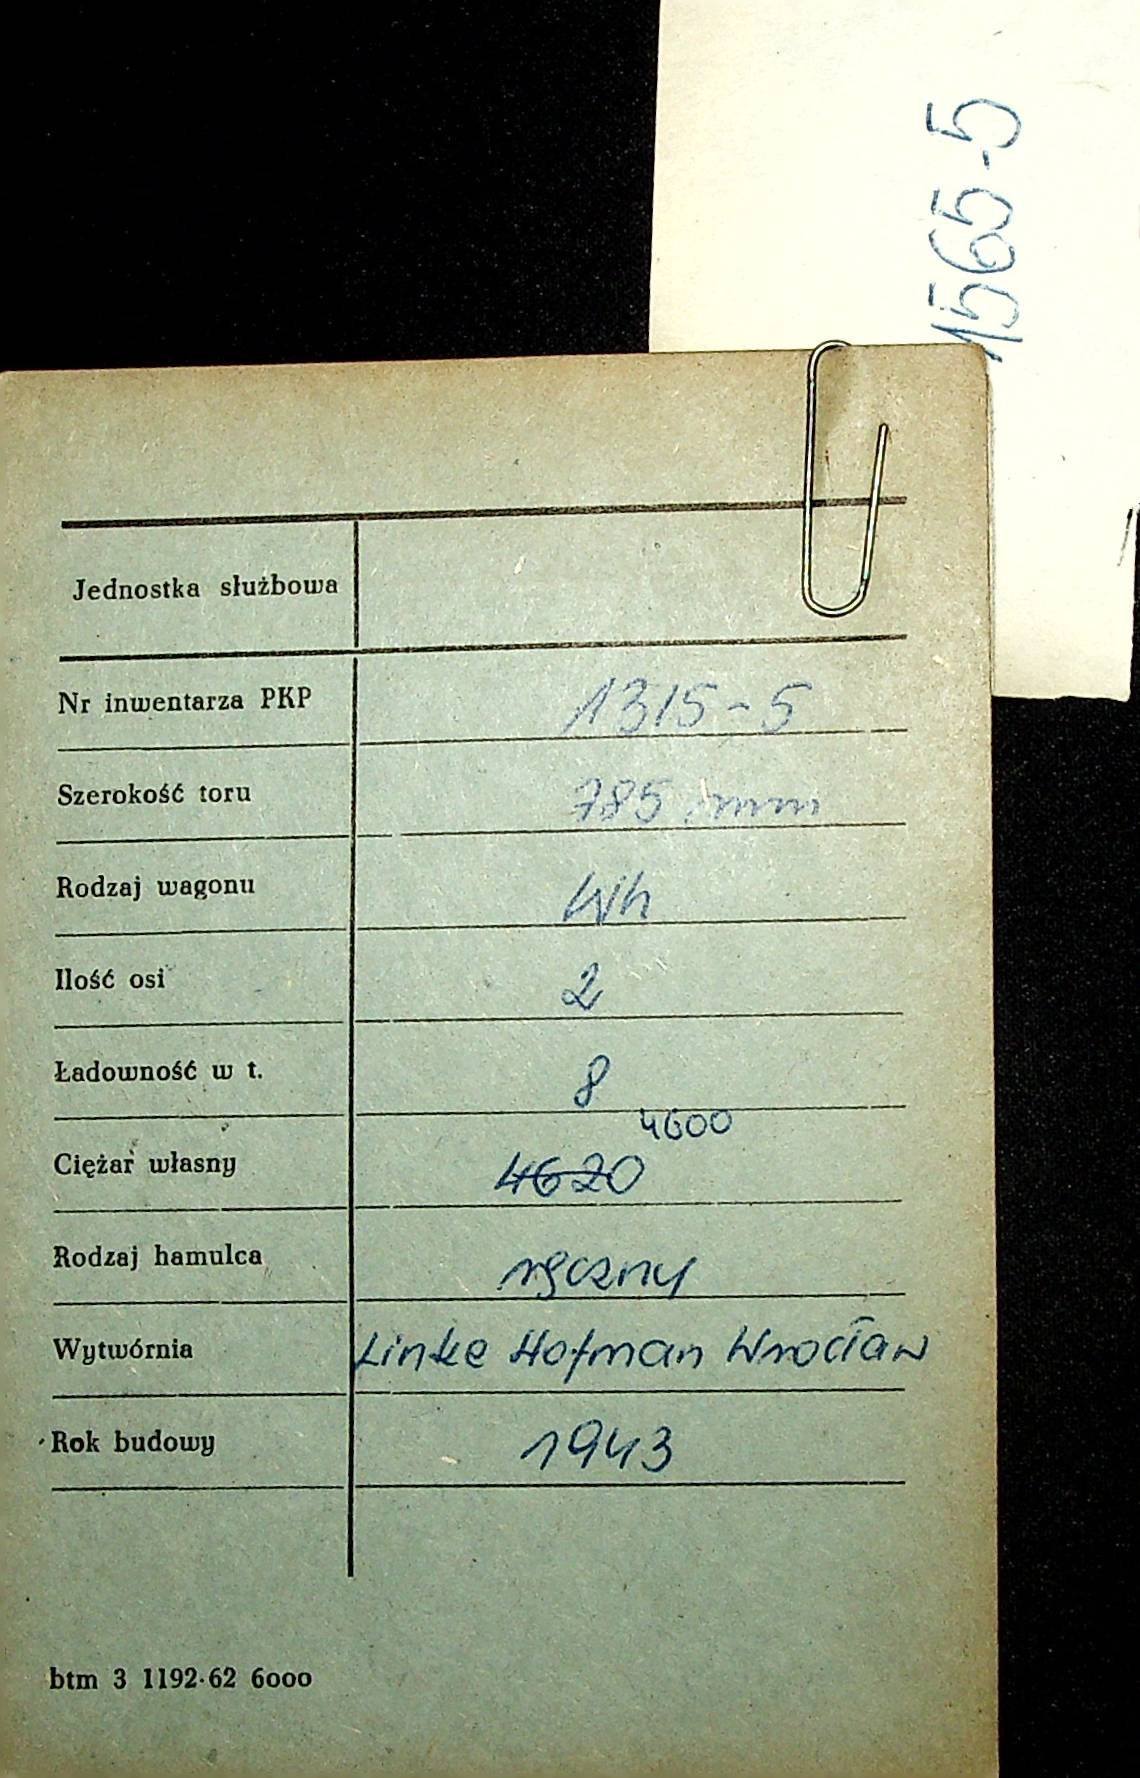 1565-5
Jednostka służbowa
Nr inwentarza PKP 1315-5
Szerokość toru 785 mm
Rodzaj wagonu Wh
Ilość osi 2
Ładowność w t. 8
4600
Ciężar własny 4620
Rodzaj hamulca ręczny
Wytwórnia Linke Hofman Wrocław
Rok budowy 1943
btm 3 1192-62 6000